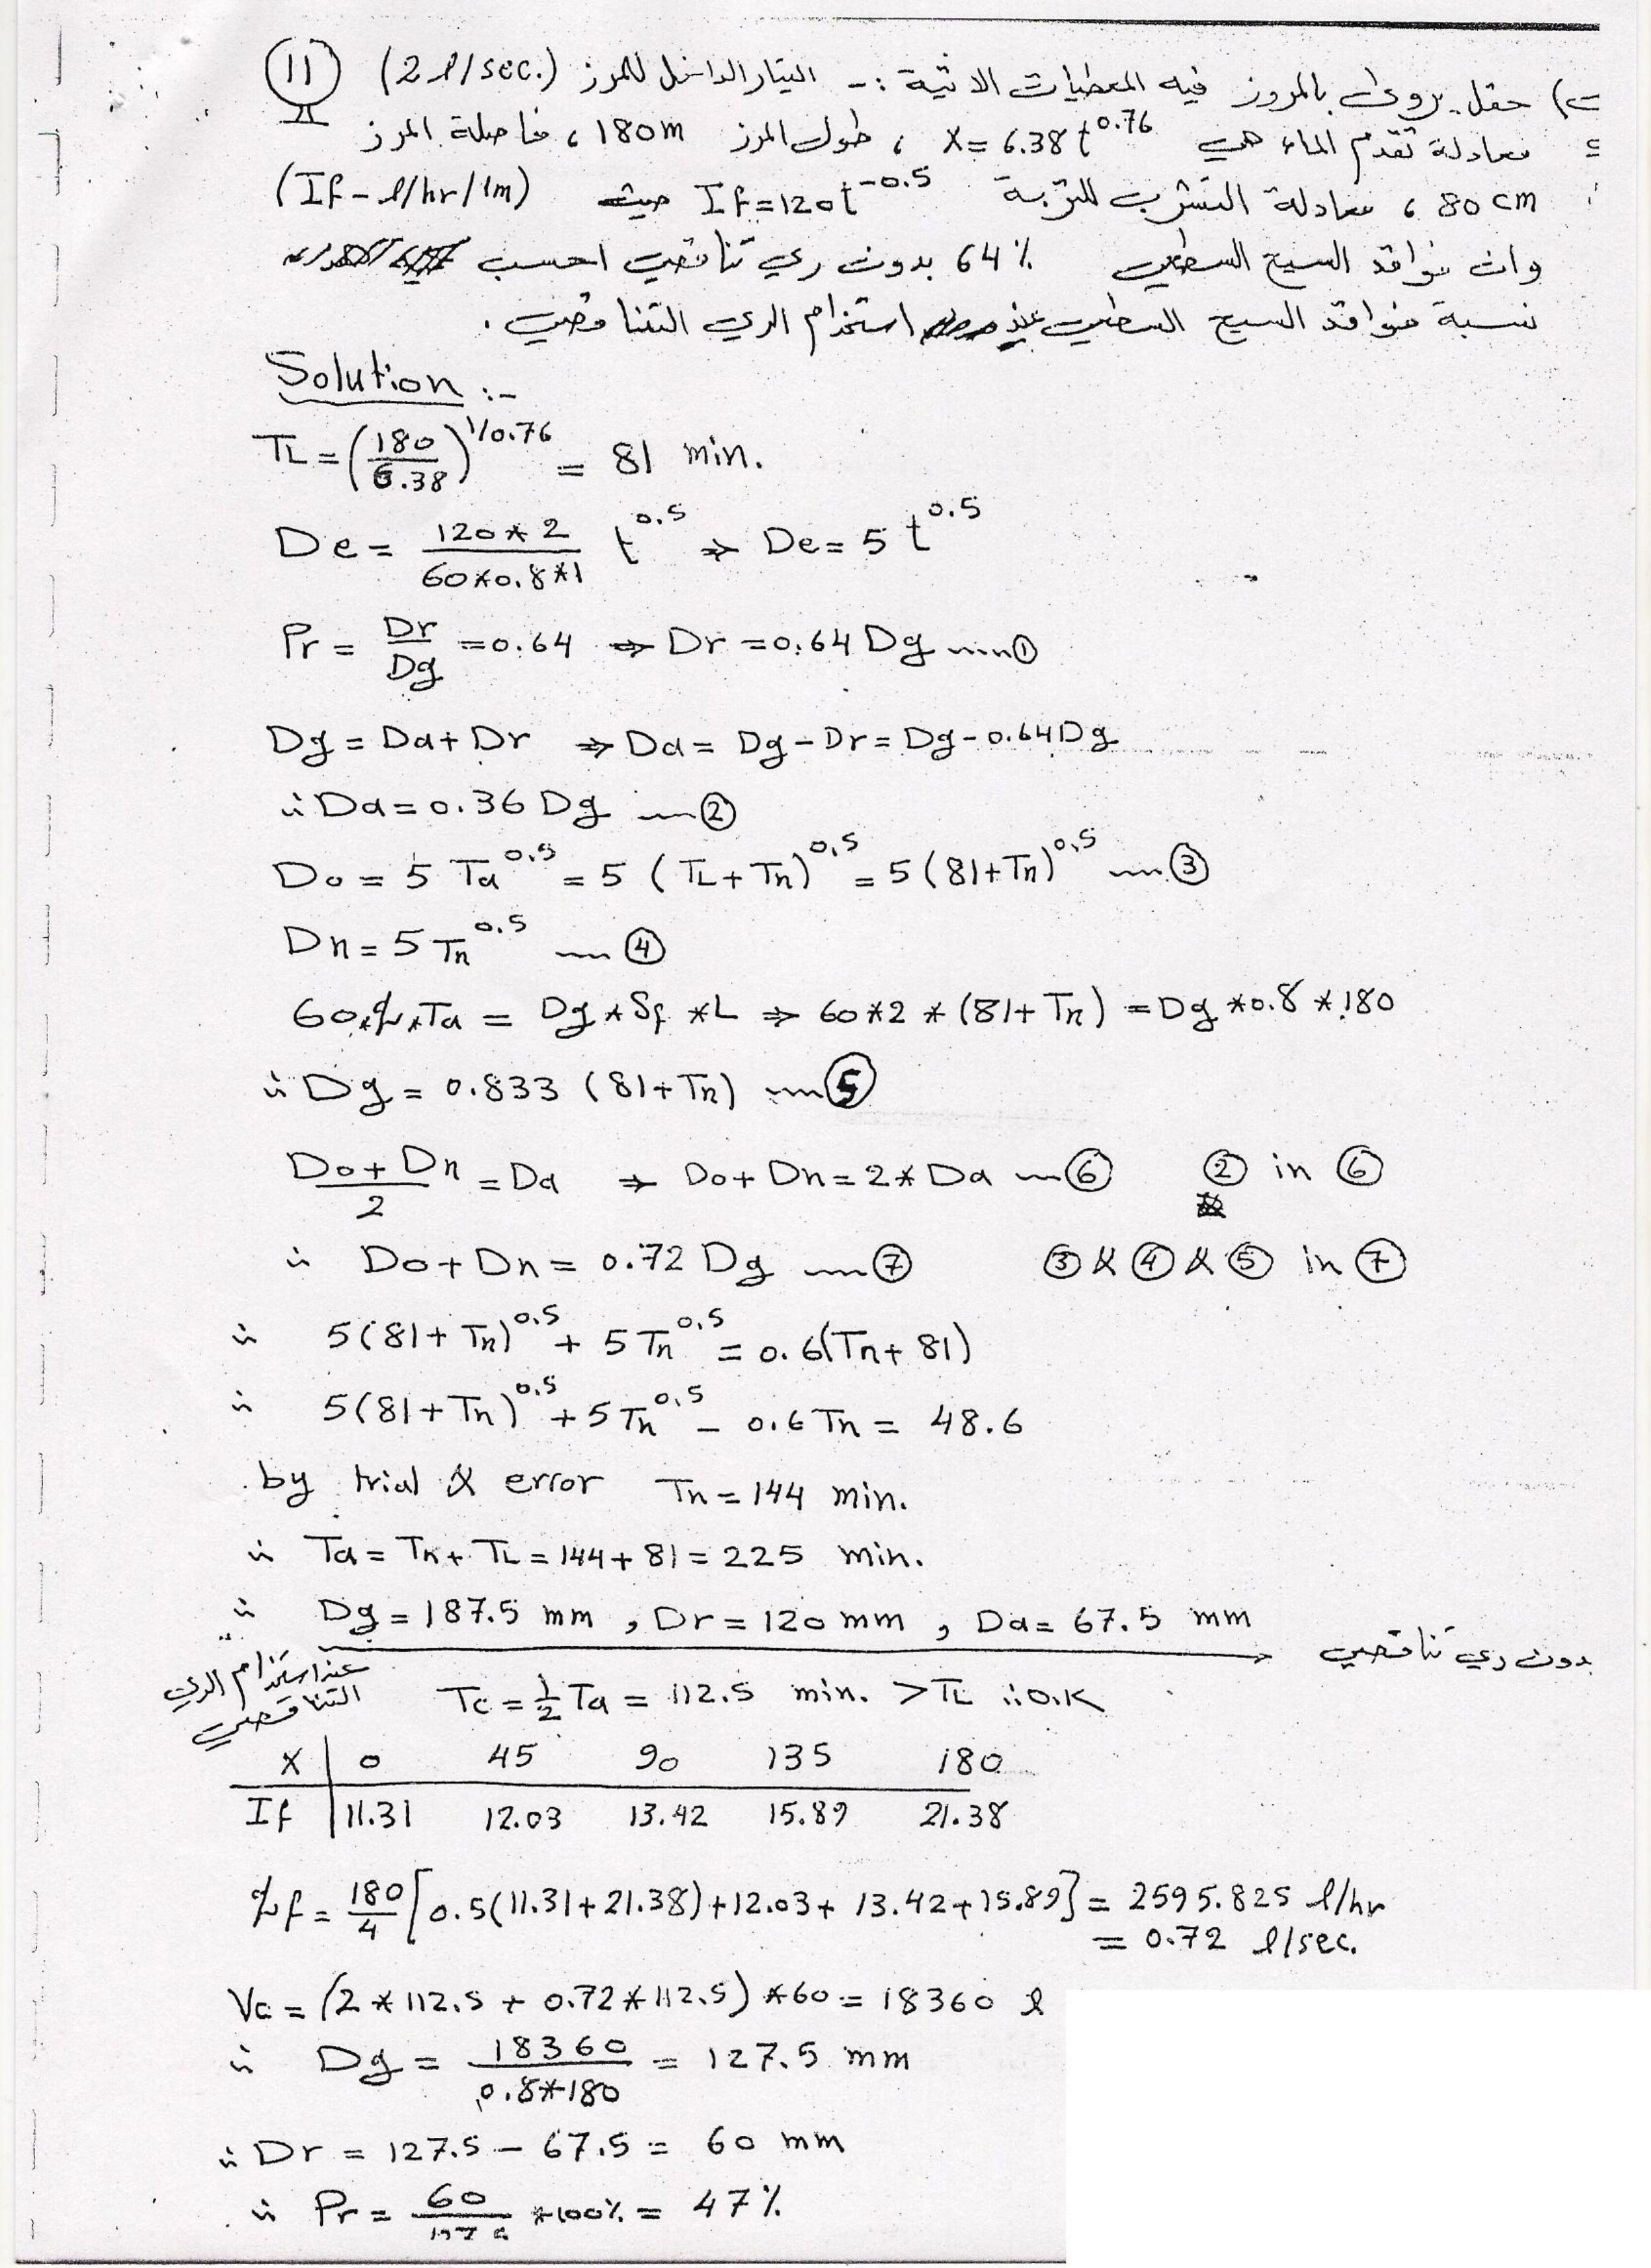 (11)
ت) حقل يروى بالمروز فيه المعطيات الاتية :- التيار الداخل للمرز (2 l/sec.)
معادلة تقدم الماء هي X= 6.38 t^0.76 ، طول المرز 180m ، فاصلة المرز
80 cm ، معادلة التشرب للتربة If=120t^-0.5 حيث (If - l/hr/1m)
وان فواقد السيح السطحي 64% بدون ري تناقصي احسب
نسبة فواقد السيح السطحي عند استخدام الري التناقصي .
Solution :-
TL = (180/6.38)^1/0.76 = 81 min.
De = (120*2)/(60*0.8*1) t^0.5 ⇒ De = 5 t^0.5
Pr = Dr/Dg = 0.64 ⇒ Dr = 0.64 Dg ---①
Dg = Da + Dr ⇒ Da = Dg - Dr = Dg - 0.64Dg
∴ Da = 0.36 Dg ---②
Do = 5 Ta^0.5 = 5 (TL + Tn)^0.5 = 5 (81+Tn)^0.5 ---③
Dn = 5 Tn^0.5 ---④
60*q*Ta = Dg * Sf * L ⇒ 60*2*(81+Tn) = Dg *0.8 * 180
∴ Dg = 0.833 (81+Tn) ---⑤
(Do + Dn)/2 = Da ⇒ Do + Dn = 2 * Da ---⑥ ② in ⑥
∴ Do + Dn = 0.72 Dg ---⑦ ③ & ④ & ⑤ in ⑦
∴ 5(81+Tn)^0.5 + 5 Tn^0.5 = 0.6(Tn+81)
∴ 5(81+Tn)^0.5 + 5 Tn^0.5 - 0.6 Tn = 48.6
by trial & error Tn = 144 min.
∴ Ta = Tn + TL = 144 + 81 = 225 min.
∴ Dg = 187.5 mm , Dr = 120 mm , Da = 67.5 mm
بدون ري تناقصي
عند استخدام الري
التناقصي
Tc = 1/2 Ta = 112.5 min. > TL ∴ O.K
X | 0 45 90 135 180
If | 11.31 12.03 13.42 15.89 21.38
qf = 180/4 [0.5(11.31+21.38)+12.03+13.42+15.89] = 2595.825 l/hr
= 0.72 l/sec.
Vc = (2*112.5 + 0.72*112.5) *60 = 18360 l
∴ Dg = 18360/(0.8*180) = 127.5 mm
∴ Dr = 127.5 - 67.5 = 60 mm
∴ Pr = 60/127.5 *100% = 47%